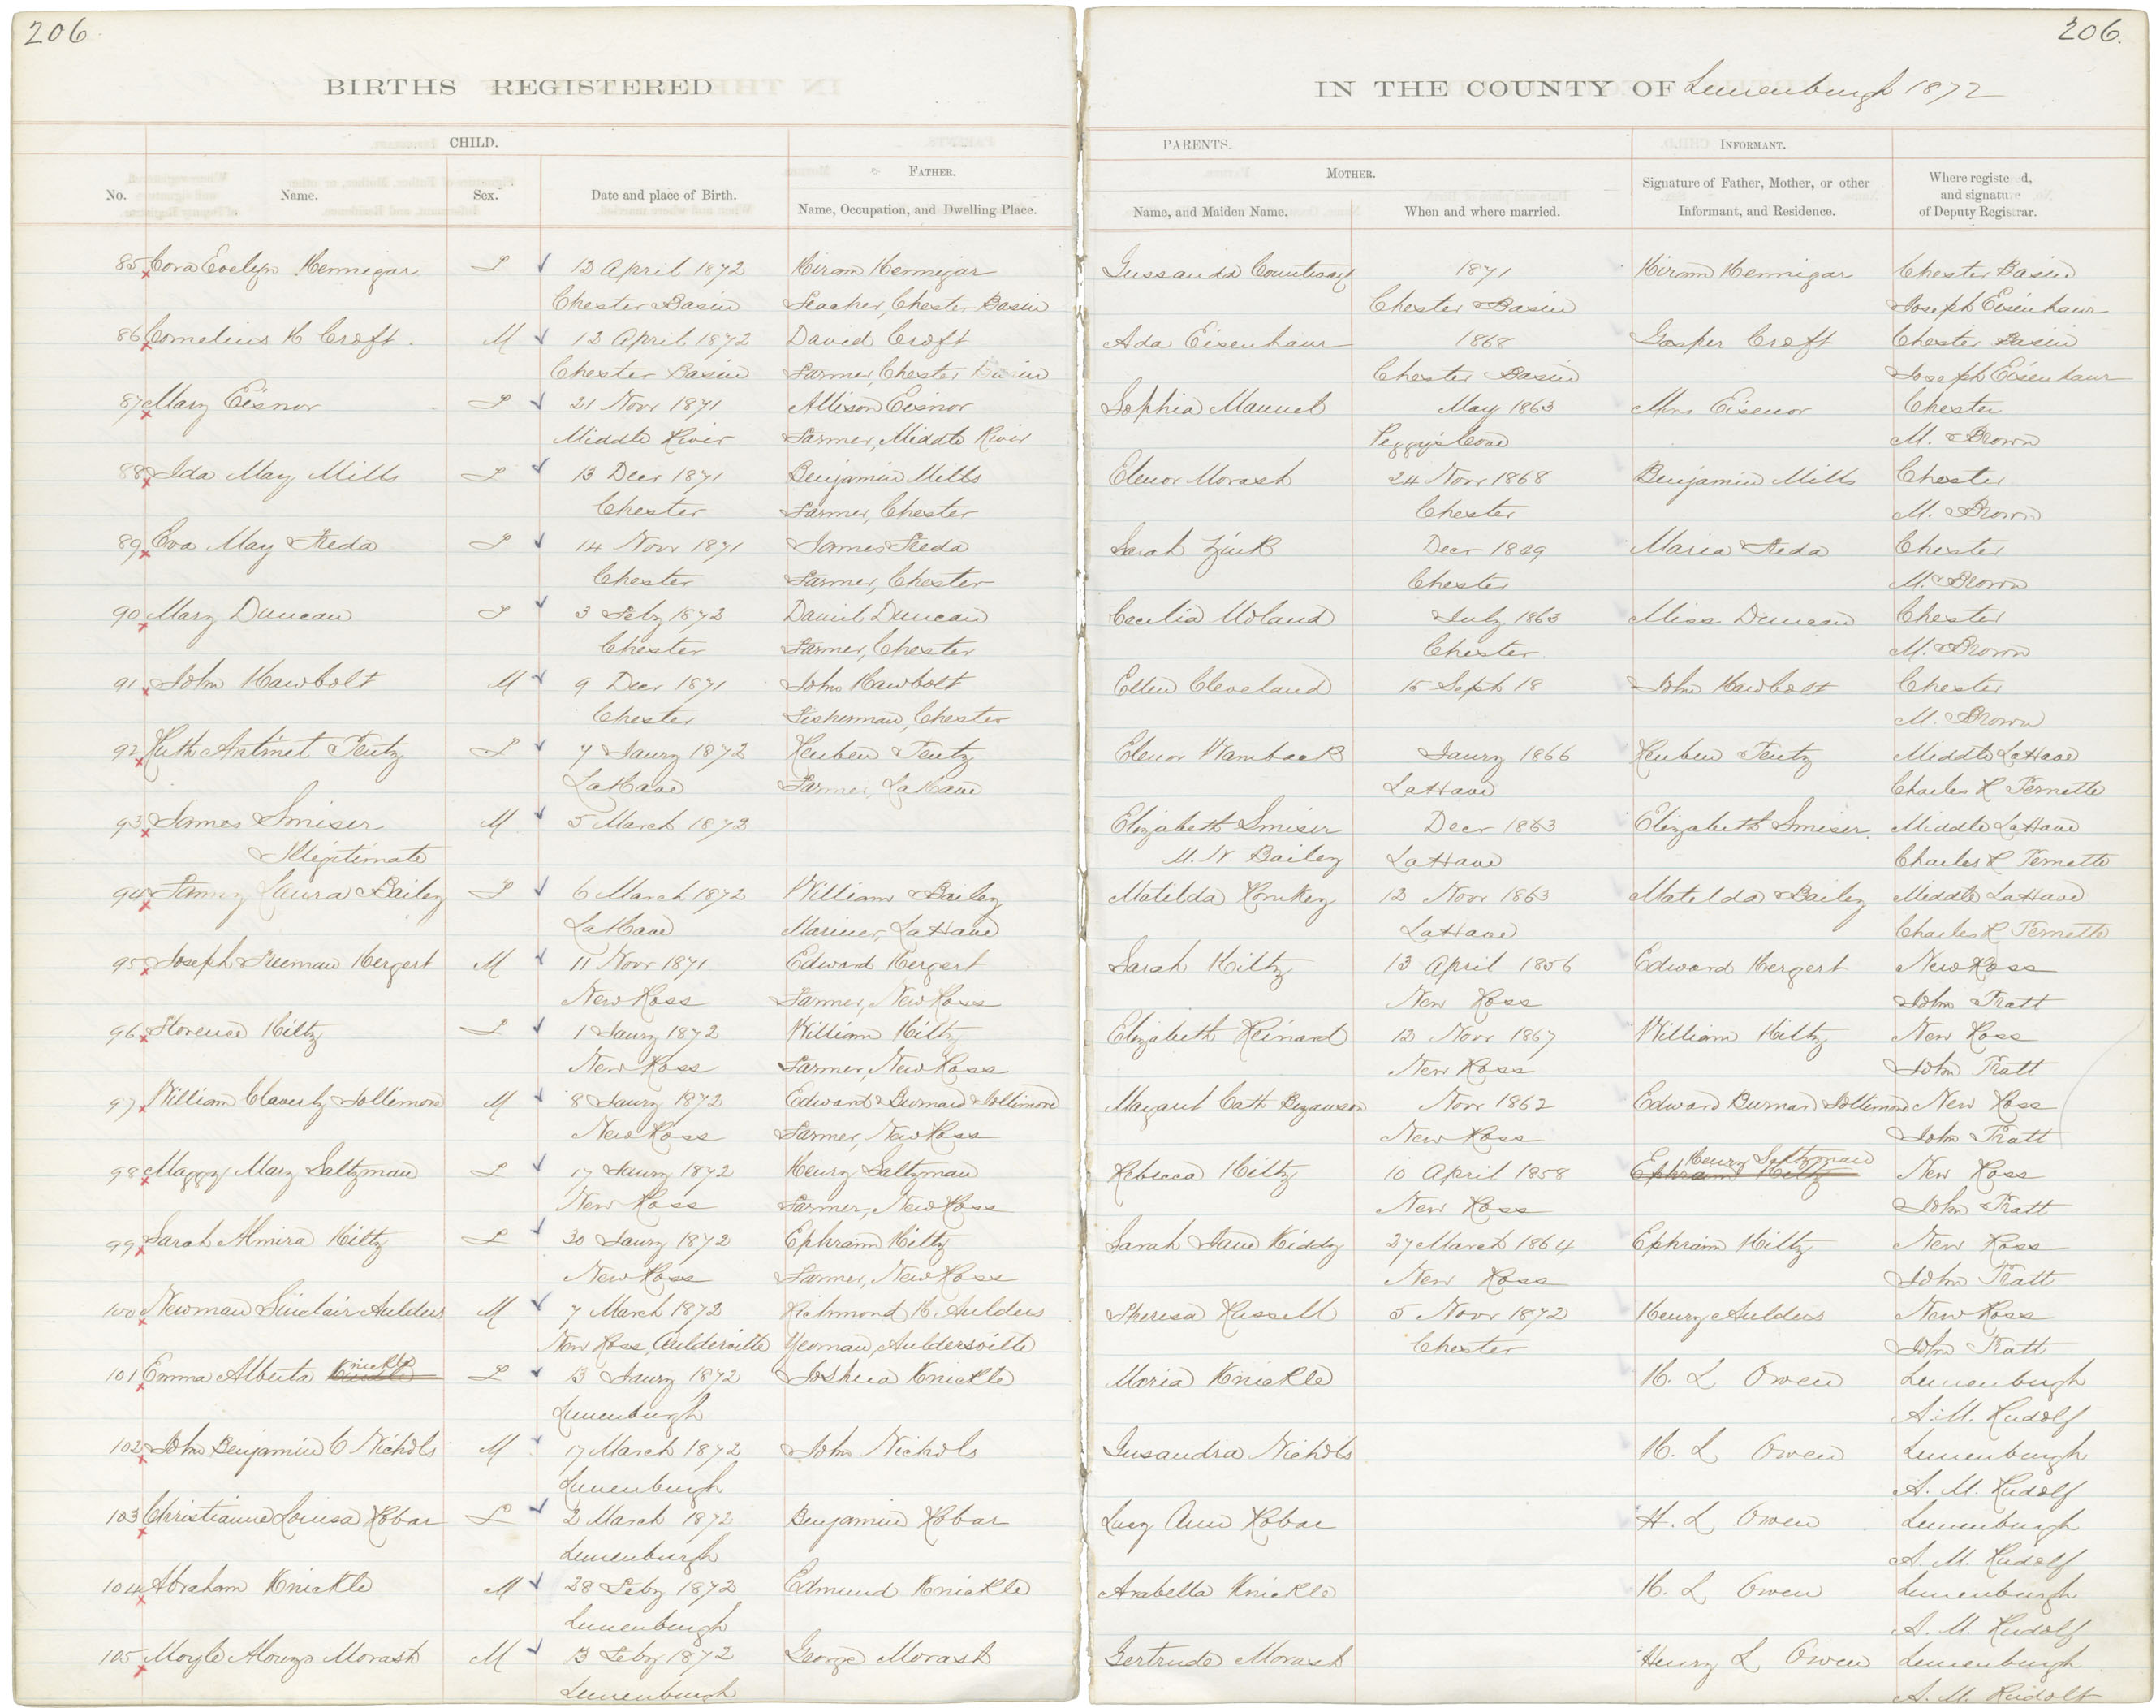 206.
206.
BIRTHS REGISTERED
IN THE COUNTY OF Lunenburgh 1872
CHILD.
PARENTS.
INFORMANT.
No.
Name.
Sex.
Date and place of Birth.
FATHER.
Name, Occupation, and Dwelling Place.
MOTHER.
Name, and Maiden Name.
When and where married.
Signature of Father, Mother, or other
Informant, and Residence.
Where registe d,
and signatu e
of Deputy Registrar.
85 Cora Evelyn Hennigar F 12 April 1872 Hiram Hennigar Gussanda Countway 1871 Hiram Hennigar Chester Basin
Chester Basin Teacher, Chester Basin Chester Basin Joseph Eisenhaur
86 Cornelius H Croft. M 12 April 1872 David Croft Ada Eisenhaur 1868 Gasper Croft Chester Basin
Chester Basin Farmer, Chester Basin Chester Basin Joseph Eisenhaur
87 Mary Eisnor F 21 Novr 1871 Allison Eisnor Sophia Manuel May 1863 Mrs Eisenor Chester
Middle River Farmer, Middle River Peggy's Cove M. Brown
88 Ida May Mills F 13 Decr 1871 Benjamin Mills Elenor Morash 24 Novr 1868 Benjamin Mills Chester
Chester Farmer, Chester Chester M. Brown
89 Eva May Freda F 14 Novr 1871 James Freda Sarah Zink Decr 1869 Maria Freda Chester
Chester Farmer, Chester Chester M. Brown
90 Mary Duncan F 3 Feby 1872 Daniel Duncan Cecelia Moland July 1863 Miss Duncan Chester
Chester Farmer, Chester Chester M. Brown
91 John Hawbolt M 9 Decr 1871 John Hawbolt Ellen Cleveland 15 Sept 18 John Hawbolt Chester
Chester Fisherman, Chester M. Brown
92 Ruth Antinet Pentz F 7 Jaury 1872 Reuben Pentz Elenor Wamback Jaury 1866 Reuben Pentz Middle LaHave
LaHave Farmer, LaHave LaHave Charles R Pernette
93 James Smiser M 5 March 1872 Elizabeth Smiser Decr 1863 Elizabeth Smiser. Middle LaHave
Illegitimate M. N. Bailey LaHave Charles R Pernette
94 Fanny Laura Bailey F 6 March 1872 William Bailey Matilda Romkey 12 Novr 1863 Matilda Bailey Middle LaHave
LaHave Mariner, LaHave LaHave Charles R Pernette
95 Joseph Freeman Hergert M 11 Novr 1871 Edward Hergert Sarah Hiltz 13 April 1856 Edward Hergert New Ross
New Ross Farmer, New Ross New Ross John Pratt
96 Florence Hiltz F 1 Jaury 1872 William Hiltz Elizabeth Reinard 12 Novr 1867 William Hiltz New Ross
New Ross Farmer, New Ross New Ross John Pratt
97 William Claverly Sollimore M 8 Jaury 1872 Edward Burnard Sollimore Margaret Cath Bezanson Novr 1862 Edward Burnard Sollimore New Ross
New Ross Farmer, New Ross New Ross John Pratt
Henry Saltzman
98 Maggy Mary Saltzman F 17 Jaury 1872 Henry Saltzman Rebecca Hiltz 10 April 1858 Ephraim Hiltz New Ross
New Ross Farmer, New Ross New Ross John Pratt
99 Sarah Almira Hiltz F 30 Jaury 1872 Ephraim Hiltz Sarah Jane Kiddy 27 March 1864 Ephraim Hiltz New Ross
New Ross Farmer, New Ross New Ross John Pratt
100 Newman Sinclair Aulders M 7 March 1872 Richmond H. Aulders Theresa Russell 5 Novr 1872 Henry Aulders New Ross
New Ross, Auldersville Yeoman, Auldersville Chester John Pratt
101 Emma Alberta Knickle F 13 Jaury 1872 Joshua Knickle Maria Knickle H. L Owen Lunenburgh
Lunenburgh A. M. Rudolf
102 John Benjamin C Nichols M 17 March 1872 John Nichols Gusandra Nichols H. L Owen Lunenburgh
Lunenburgh A. M. Rudolf
103 Christianne Louisa Robar F 2 March 1872 Benjamin Robar Lucy Ann Robar H. L Owen Lunenburgh
Lunenburgh A. M. Rudolf
104 Abraham Knickle M 28 Feby 1872 Edmund Knickle Arabella Knickle H. L Owen Lunenburgh
Lunenburgh A. M. Rudolf
105 Moyle Alonzo Morash M 13 Feby 1872 George Morash Gertrude Morash Henry L Owen Lunenburgh
Lunenburgh A. M. Rudolf